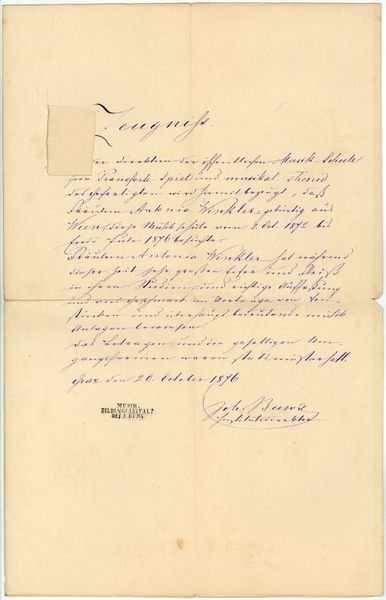 Zeugniss.
der Direktion der öffentlichen Musik-Schule
für Pianoforte-Spiel und musikal. Theorie
des Gefertigten wird hiemit bezeugt, daß
Fräulein Antonia Winkler, gebürtig aus
Wien, diese Musikschule vom 2. Oct. 1872 bis
Ende Juli 1876 besuchte.
Fräulein Antonia Winkler hat während
dieser Zeit sehr großen Eifer und Fleiß
in ihren Studien und richtige Auffassung
und viel Geschmack im Vortrage von
und überhaupt bedeutende musik.
Anlagen bewiesen.
Das Betragen und die geselligen Um-
gangsformen waren stets musterhaft.
Graz den 20. October 1876
Joh. Buwa
Institutsdirektor
MUSIK-
BILDUNGSANSTALT
DES J. BUWA.